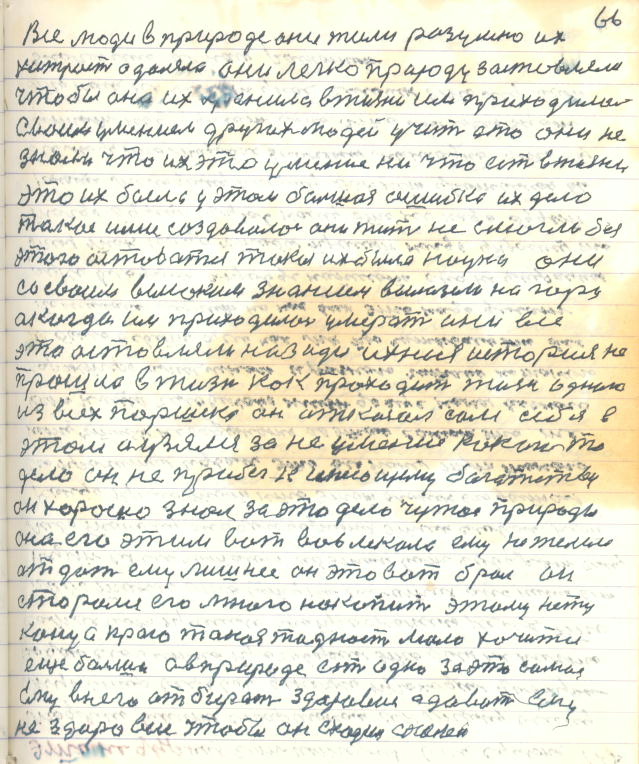 66
Все люди в природе они жили разумно их
хитрост одаляла они легко природу заставляли
чтобы она их хранила в жизни им приходилос
своим умением других людей учит это они не
знали что их это умение ни что ест в жизни
это их была у этом большая ошибка их дело
такое ими создовалос они жит не смогли без
этого оставатся такая их была наука они
со своим высоким знанием вылазели на гору
а когда им приходилос умерат они все
это оставляли на зади ихняя история не
прошла в жизн как проходит жизн одного
из всех Паршека он отказал сам себя в
этом а узялся за не умение какое то
дело он не прибег к
богатству
он хорошо знал за это дело чужое природы
она его этим вот вовлекала ему не жалела
отдат ему лишнее он это вот брал он
старался его много накопит этому нету
концу а право такая жадност мало хочится
еще больше а в природе ест одно за это самое
ему в него отбират здоровия а дават ему
не здоровие чтобы он сходил